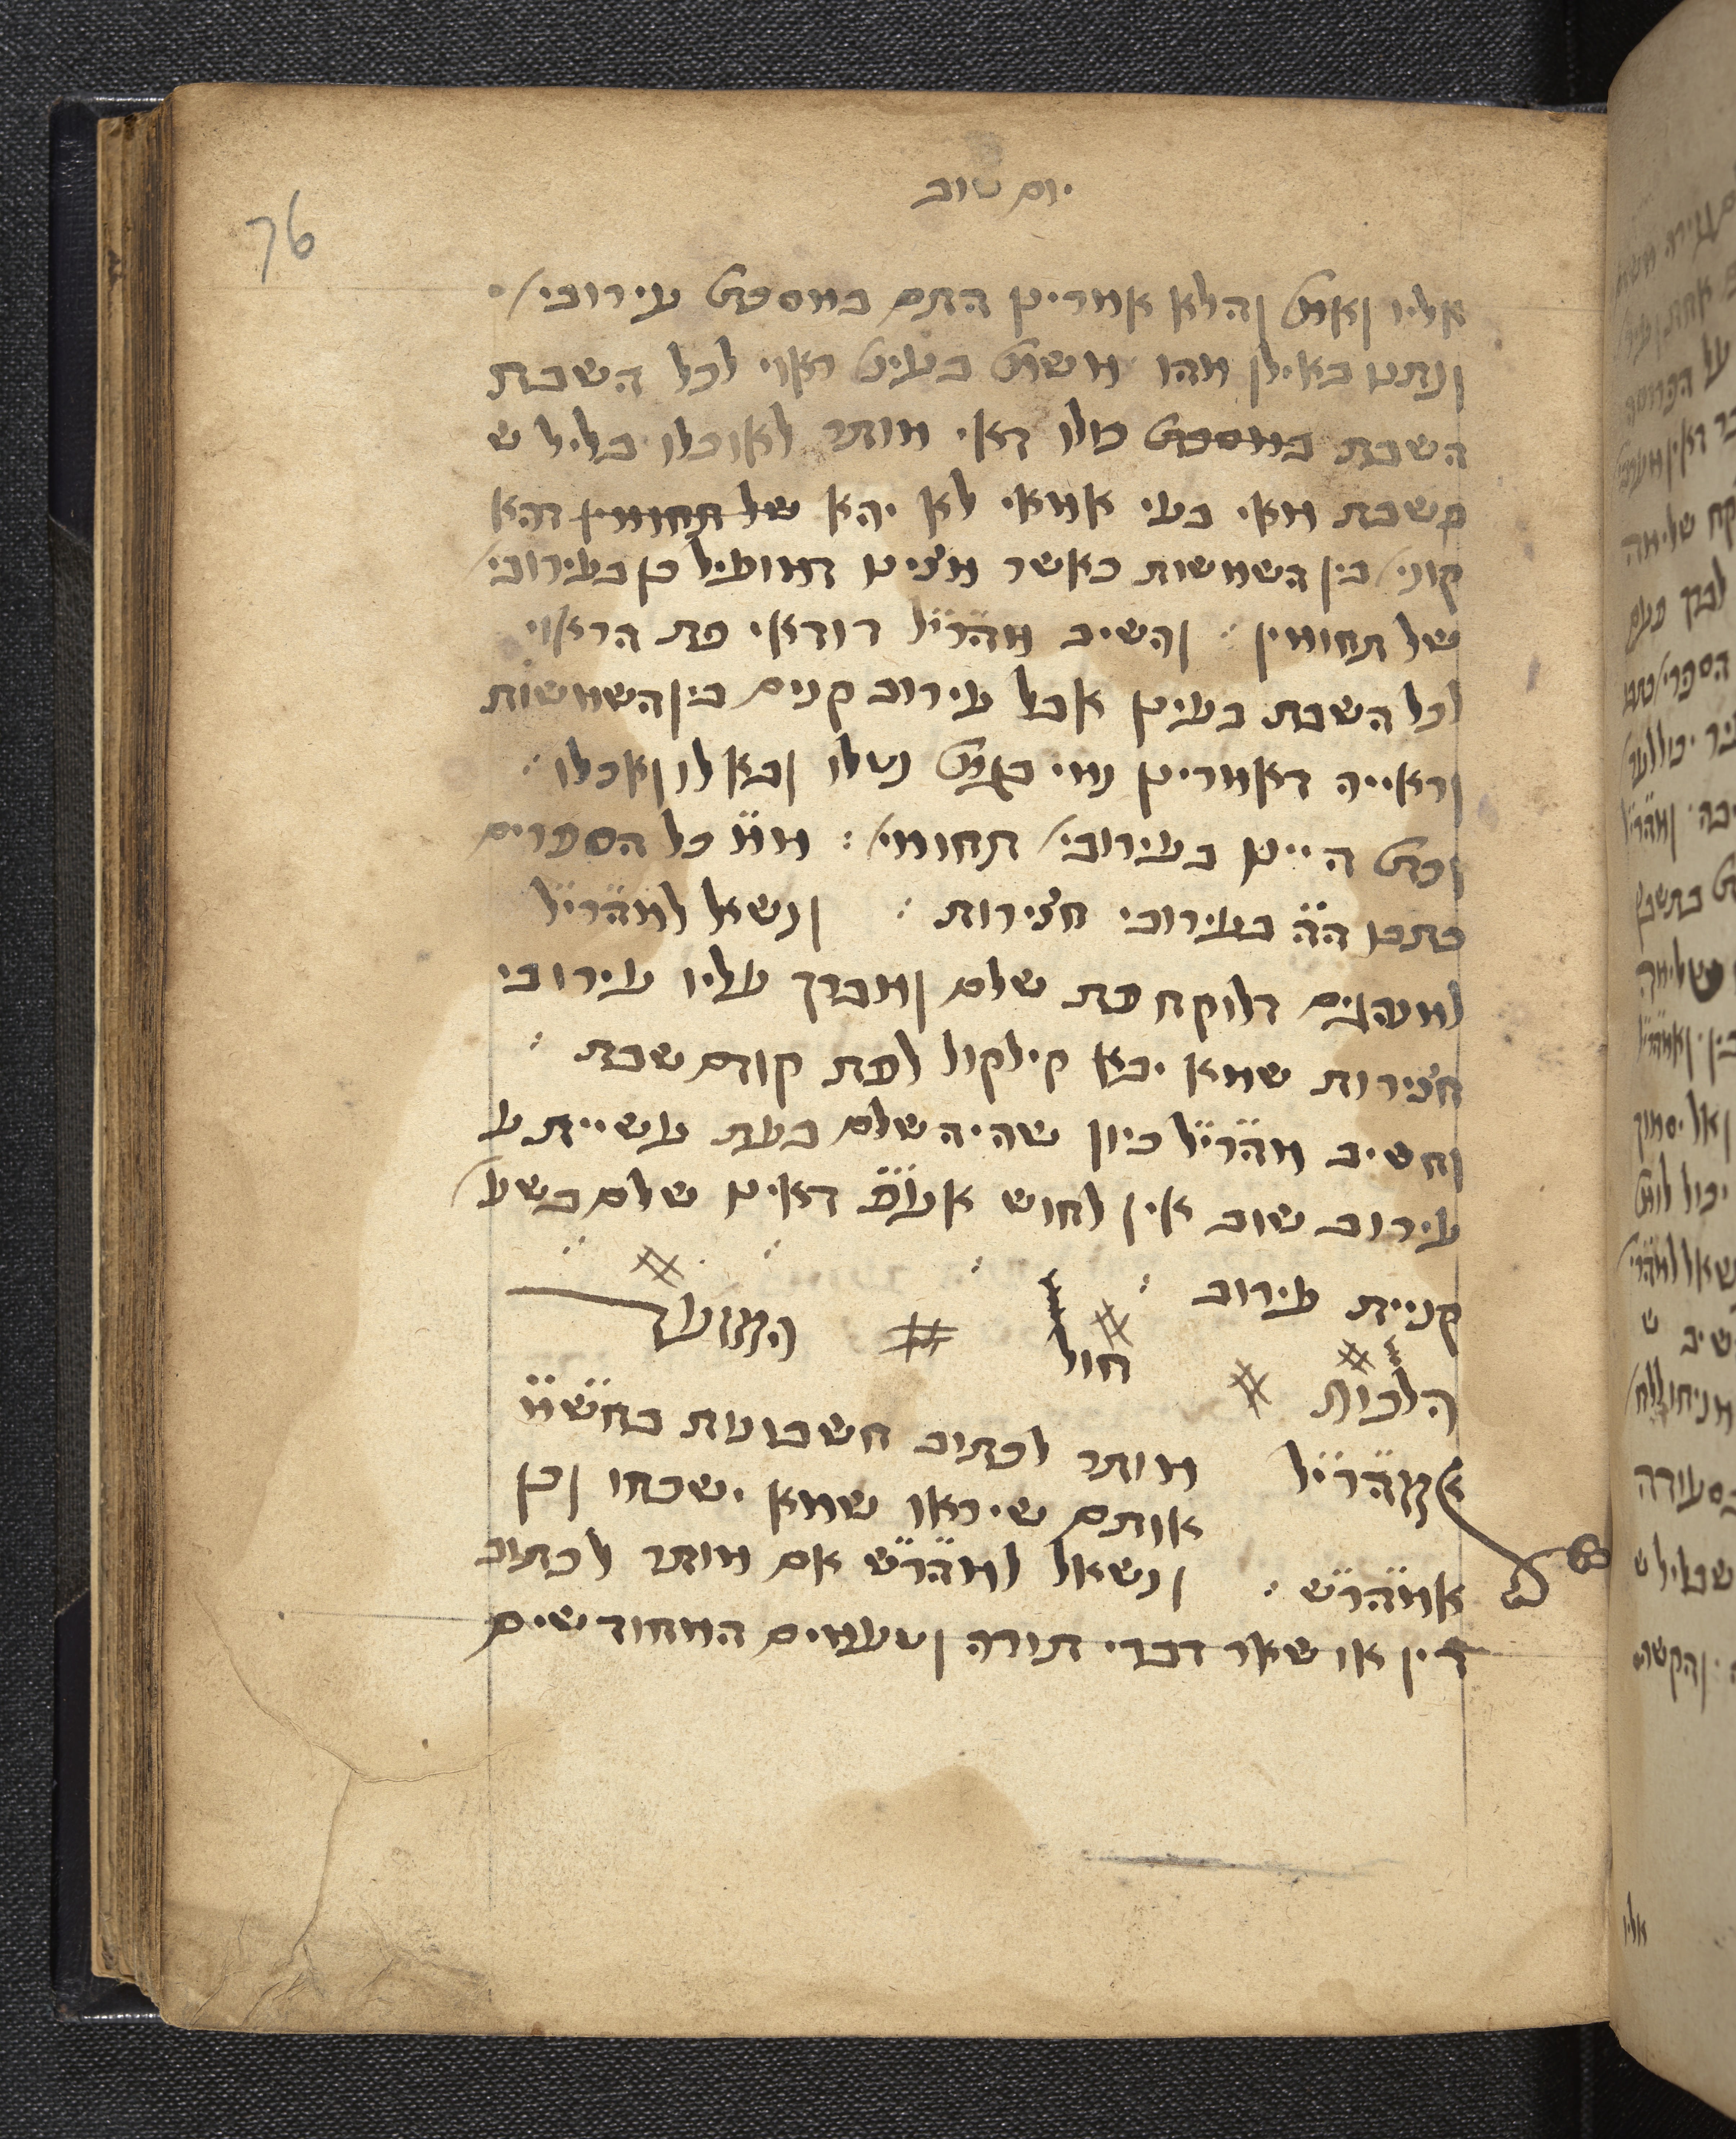 יום טוב
76
אליו ואמ' והלא אמרינן התם במסכת עירובי'
ונתנו באילן מהו משום בעינן ראוי לכל השבת
השבת במסכת כולו דאי מותר לאוכלו בליל ש
בשבת מאי בעי אמאי לא יהא של תחומין דהא
קוני' בין השמשות כאשר מצינו דמועיל כן בעירובי'
של תחומין : והשיב מהרי״ל דודאי פת הראוי
לכל השבת בעינן אבל עירוב קונים בין השמשות
וראייה דאמרינן נמי נטלו ובא לו ואכלו :
היינו בעירובי' תחומי' : מ״מ כל הספרים
כתבו ה״ה בעירובי חצירות : ונשאל למהרי״ל
דלוקח פת שלם ומברך עליו עירובי
חצירות שמא יבא קילקול לפת קודם שבת :
והשיב מהרי״ל כיון שהיה שלם בעת עשיית ע
עירוב שוב אין לחוש אע״פ דאינו שלם בשע'
קניית עירוב :
הלכות חול המועד
מהרי״ל מותר לכתוב חשבונות בחש״מ
אותם שיראו שמא ישכחו וכן
אמהר״ש : ונשאל למהר״ש אם מותר לכתוב
דין או שאר דברי תורה וטעמים המחודשים